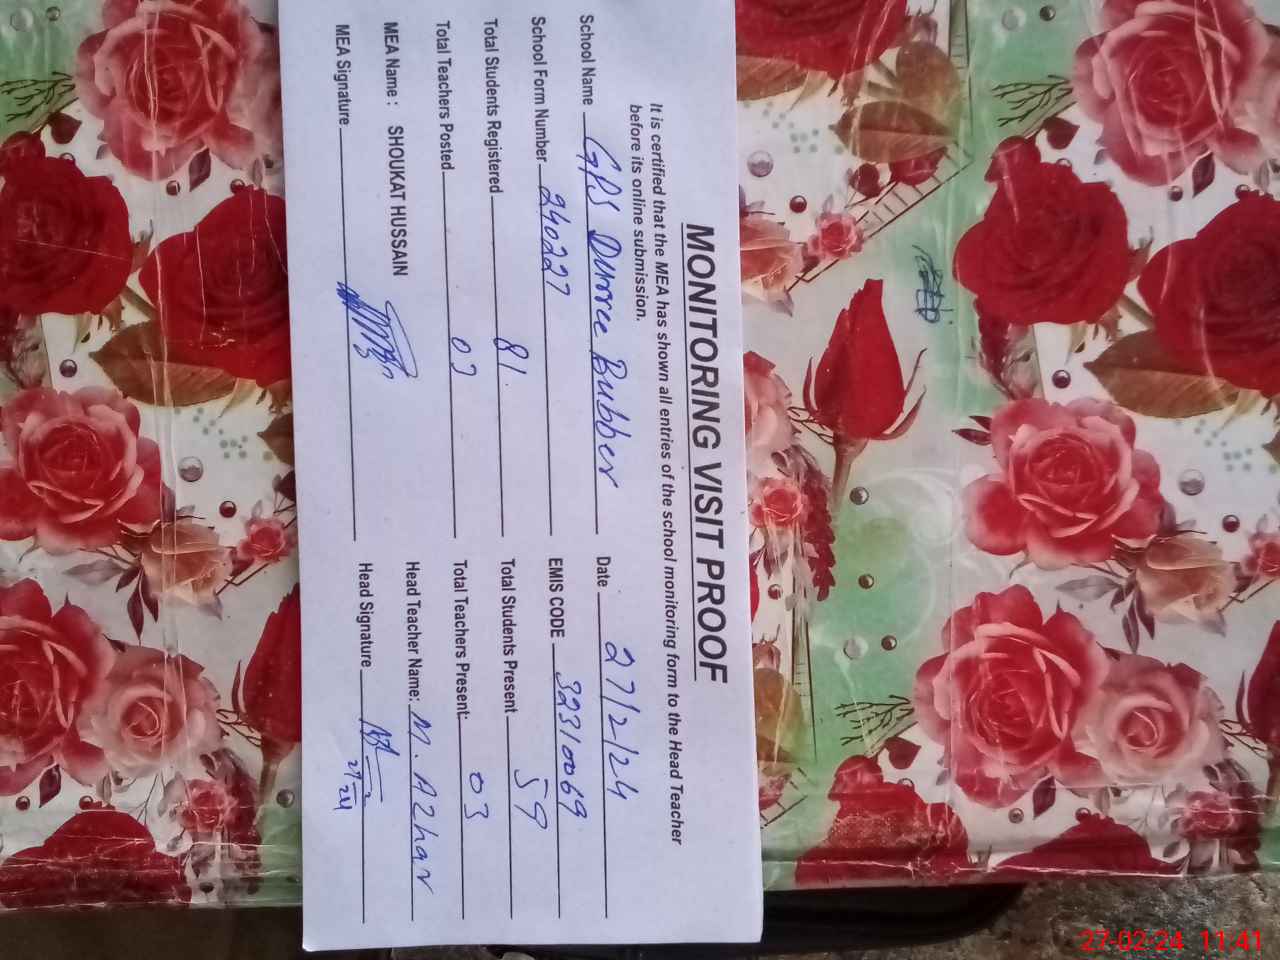 MONITORING VISIT PROOF
It is certified that the MEA has shown all entries of the school monitoring form to the Head Teacher
before its online submission.
School Name GPS Durree Bubber Date 27/2/24
School Form Number 240227 EMIS CODE 32310069
Total Students Registered 81 Total Students Present 59
Total Teachers Posted 03 Total Teachers Present: 03
MEA Name : SHOUKAT HUSSAIN Head Teacher Name: M. Azhar
MEA Signature Head Signature
27-02-24 11:41